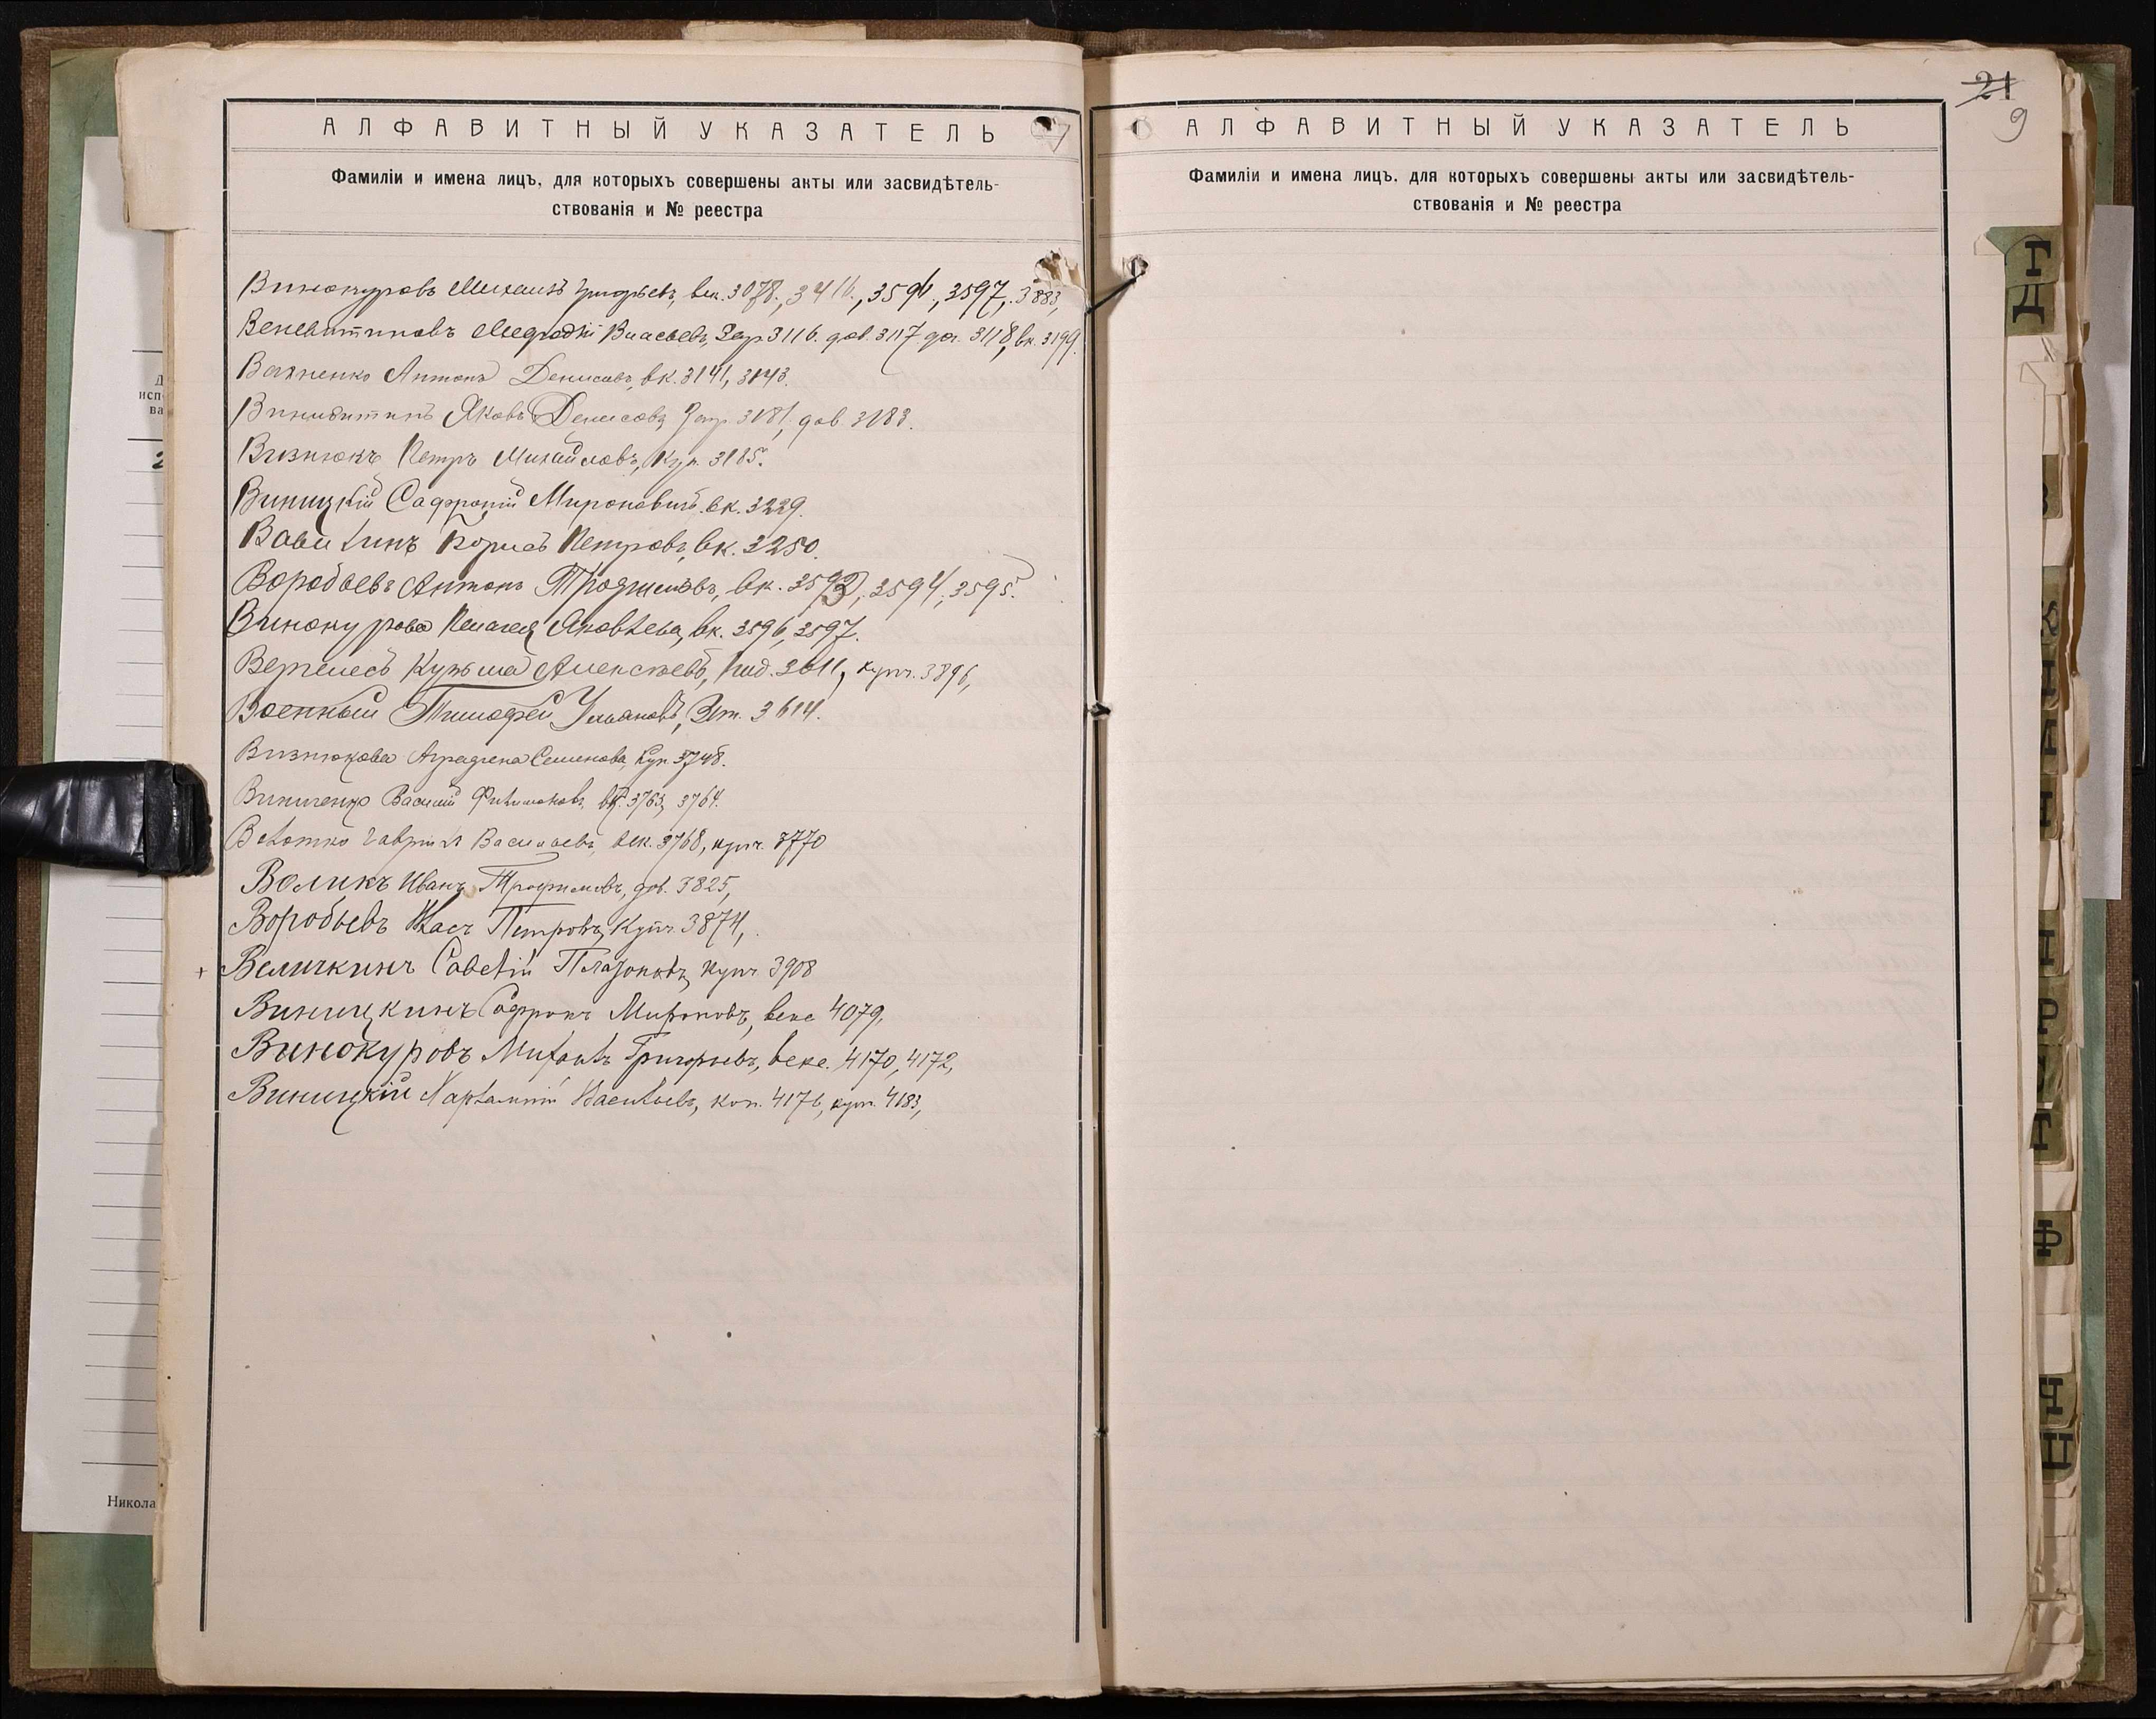 АЛФАВИТНЫЙ УКАЗАТЕЛЬ
Фамиліи и имена лицъ, для которыхъ совершены акты или засвидѣтель-
ствованія и № реестра
Винокуровъ Михаилъ Григорьевъ, век. 3078., 3416., 3596, 3597, 3883,
Веневитиновъ Мефодій Власьевъ, 3116. дов. 3117 3118, вк. 3199.
Антонъ Денисовъ, вк. 3141, 3143.
Яковъ Денисовъ, 3181, дов. 3183.
Визнюкъ Петръ Михайловъ, Куп. 3185.
Виницкій Сафроній Мироновичъ. вк. 3229.
Вавилинъ Борисъ Петровъ, вк. 3250.
Воробьевъ Антонъ Трофимовъ, вк. 3593, 3594, 3595.
Винокурова Пелагея Яковлева, вк. 3596, 3597.
Вержелесъ Кузьма Алексѣевъ, 3611, купч. 3896,
Военный Тимофей Ульяновъ, 3614.
Визнюкова Аграфена Семенова, Куп. 3748.
Виниченко Василій Филимоновъ, вк. 3763, 3764.
Гавріилъ Васильевъ, век. 3768, купч. 3770
Воликъ Иванъ Трофимовъ, дов. 3825,
Воробьевъ Петровъ, Купч. 3874,
+ Величкинъ Савелій Платоновъ, купч. 3908
Виницкинъ Софронъ Мироновъ, векс 4079,
Винокуровъ Михаилъ Григорьевъ, векс. 4170, 4172,
Виницкій Харлампій Васильевъ, коп. 4176, купч. 4183,
АЛФАВИТНЫЙ УКАЗАТЕЛЬ
Фамиліи и имена лицъ, для которыхъ совершены акты или засвидѣтель-
ствованія и № реестра
21
9
Г
Д
Р
Т
Ф
Ч
Никола